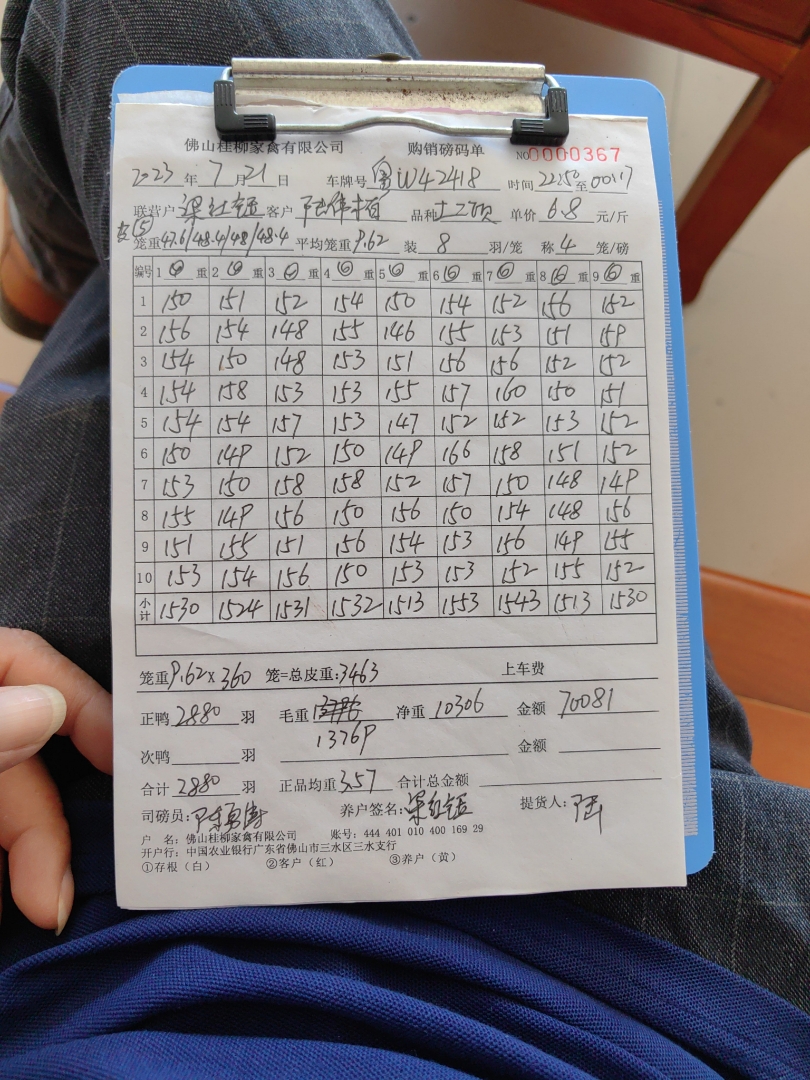 佛山桂柳家禽有限公司 购销磅码单 NO0000367
2023年7月21日 车牌号 W42418 时间22:50至00:17
联营户 梁红 客户 陆伟 品种 土二 单价 6.8 元/斤
⑤ 笼重47.6/48.4/48/48.4 平均笼重9.62 装 8 羽/笼 称 4 笼/磅
编号 1 ⑥ 重 2 ⑥ 重 3 ⑥ 重 4 ⑥ 重 5 ⑥ 重 6 ⑥ 重 7 ⑥ 重 8 ⑥ 重 9 ⑥ 重
1 150 151 152 154 150 154 152 156 152
2 156 154 148 155 146 155 153 151 159
3 154 150 148 153 151 156 156 152 152
4 154 158 153 153 155 157 160 150 151
5 154 154 157 153 147 152 152 153 152
6 150 149 152 150 149 166 158 151 152
7 153 150 158 158 152 157 150 148 149
8 155 149 156 150 156 150 154 148 156
9 151 155 151 156 154 153 156 149 155
10 153 154 156 150 153 153 152 155 152
小计 1530 1524 1531 1532 1513 1553 1543 1513 1530
笼重9.62×360 笼=总皮重:3463 上车费
正鸭 2880 羽 毛重 净重 10306 金额 70081
13769
次鸭 羽 金额
合计 2880 羽 正品均重 3.57 合计总金额
司磅员: 养户签名:梁红 提货人:陆
户 名:佛山桂柳家禽有限公司 账号:444 401 010 400 169 29
开户行:中国农业银行广东省佛山市三水区三水支行
①存根(白) ②客户(红) ③养户(黄)